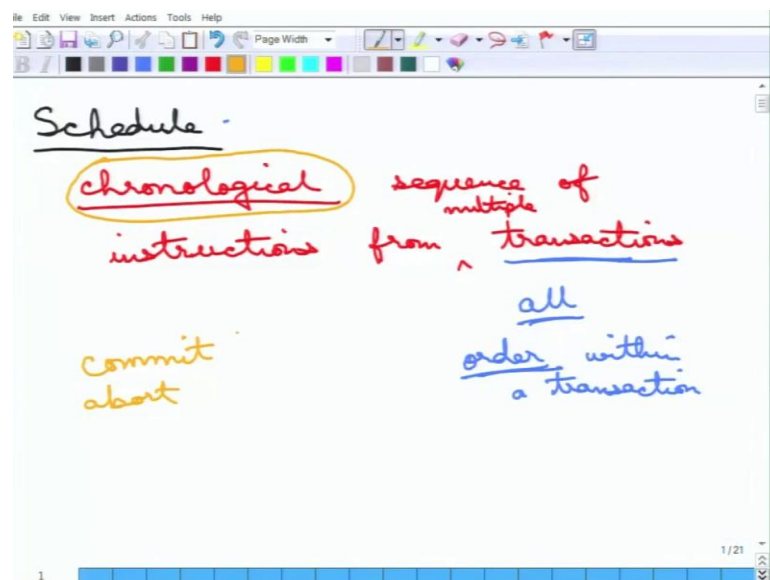 ile Edit View Insert Actions Tools Help
Page Width
B I
Schedule
chronological sequence of
multiple
instructions from ^ transactions
all
commit order within
abort a transaction
1/21
1